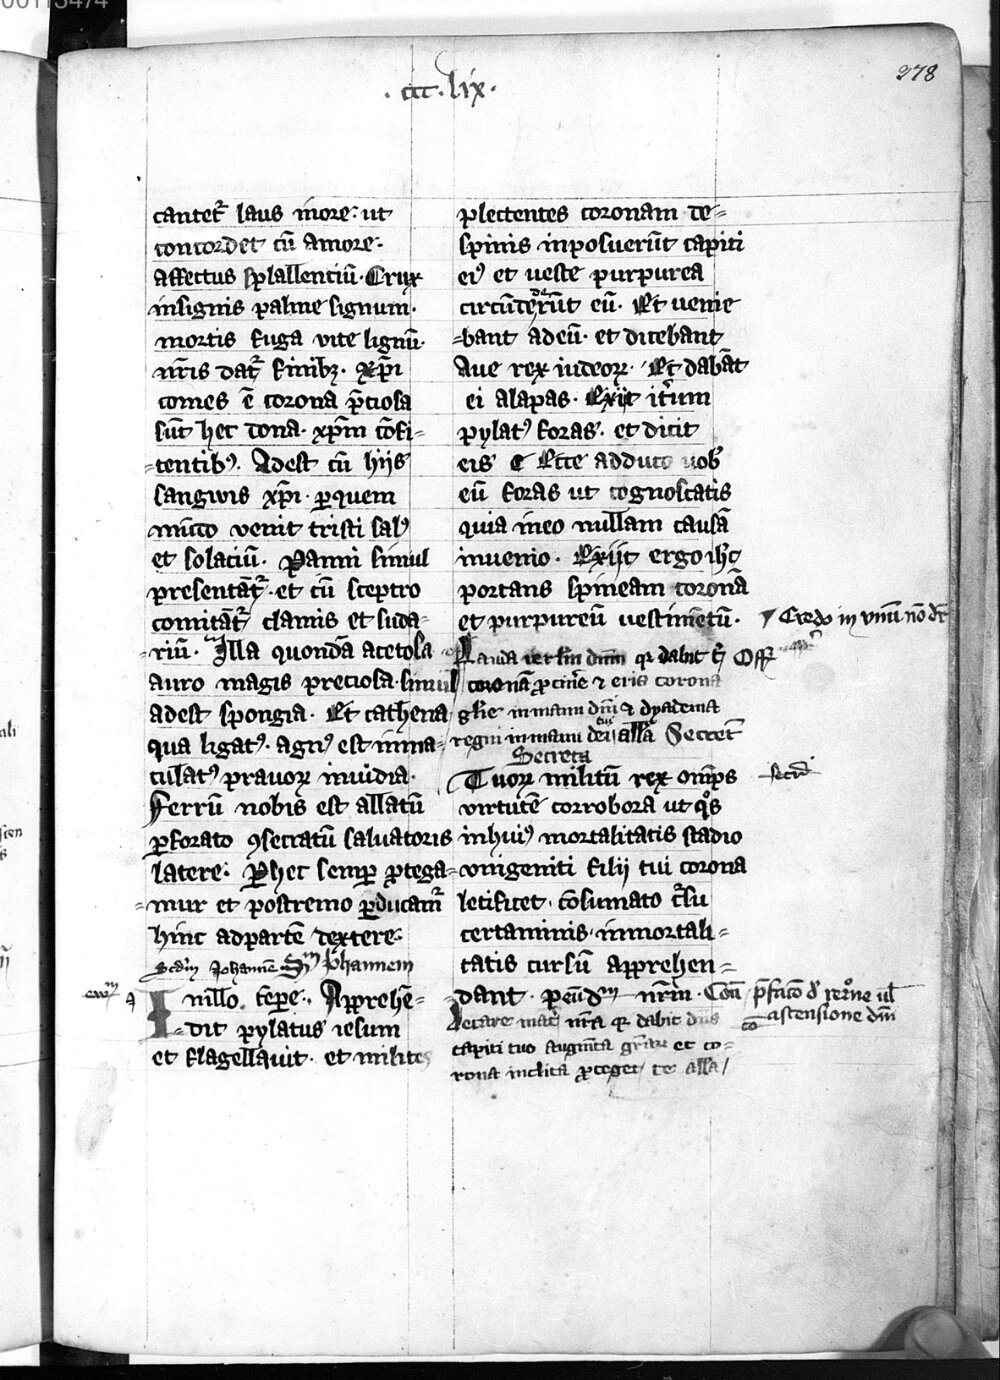 00113474
378
.ccc.lix.
cantet᷑ laus more: ut
concordet cū amore.
affectus spallenciū. Crux
insignis palme signum.
mortis fuga vite lignū.
nr̄is dat᷑ finibꝫ. xp̄i
comes ē corona p̄ciosa
sūt hec dona. xp̄m cōfi=
=tentibꝰ. Adest cū hijs
sangwis xp̄i. ꝑquem
mūdo venit tristi salꝰ
et solaciū. Panni simul
presentāt᷑. et cū sceptro
comitāt᷑ clamis et suda=
=riū. Illa quondā acetosa
auro magis preciosa. simul
adest spongia. Et cathena
qua ligatꝰ. agnꝰ est inma=
culatꝰ prauoꝝ inuidia.
Ferrū nobis est allatū
ꝑforato ꝯsecratū saluatoris
latere. P hec semꝑ ꝓtega=
=mur et postremo ꝑducam᷑
hinc adpartē dextere.
Scd̄m Johannē
ewm̄
In illo tēpe: Apprehē=
=dit pylatus iesum
et flagellauit. et milites
plectentes coronam de=
spinis inposuerūt capiti
eiꝰ et ueste purpurea
circūdederūt eū. Et uenie
=bant adeū. et dicebant
Aue rex iudeoꝝ. Et dabāt
ei alapas. Exijt it̄um
pylatꝰ foras. et dicit
eis Ecce adduco uob̄
eū foras ut cognoscatis
quia in eo nullam causā
inuenio. Exijt ergo ih̄c
portans spineam coronā
et purpureū uestimētū.
Credo in vnū nō dr̄
Off
coronā
glīe in manu dn̄i ⁊ dyadema
regni in manu dei tui all̄a Secret᷑
Secreta
Tuoꝝ militū rex om̄ps
virtutē corrobora ut qͦs
inhuiꝰ mortalitatis stadio
vnigeniti filij tui corona
letificet. cōsumato c̄su
certaminis. inmortali=
tatis cursū apprehen=
=dant. p eūdm̄ nr̄m. Com̄
ascensione dn̄i
capiti tuo augm̄ta gr̄aꝝ et co=
rona inclita ꝓteget te all̄a